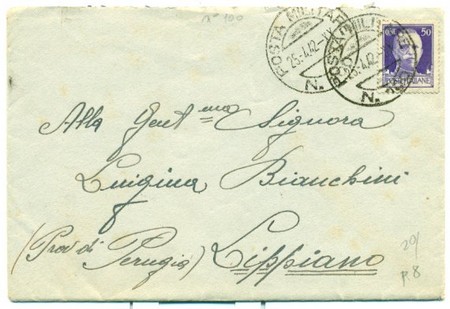 n° 100
POSTA MILITARE
25.4.42.XX
N.
POSTA MILITARE
25.4.42
N.
50
POSTE ITALIANE
Alla Gent.ma Signora
Luigina Bianchini
(Prov. di Perugia) Lippiano
20/
P. 8